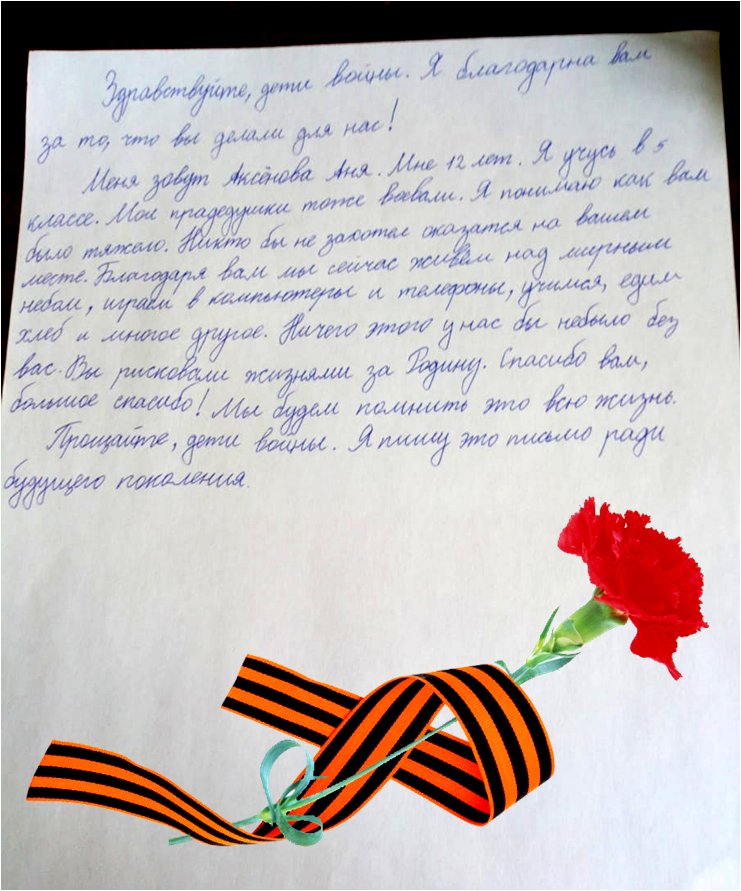 Здравствуйте, дети войны. Я благодарна вам
за то, что вы делали для нас!
Меня зовут Аксёнова Аня. Мне 12 лет. Я учусь в 5
классе. Мои прадедушки тоже воевали. Я понимаю как вам
было тяжело. Никто бы не захотел оказатся на вашем
месте. Благодаря вам мы сейчас живём над мирным
небом, играем в компьютеры и телефоны, учимся, едим
хлеб и многое другое. Ничего этого у нас бы небыло без
вас. Вы рисковали жизнями за Родину. Спасибо вам,
большое спасибо! Мы будем помнить это всю жизнь.
Прощайте, дети войны. Я пишу это письмо ради
будущего поколения.